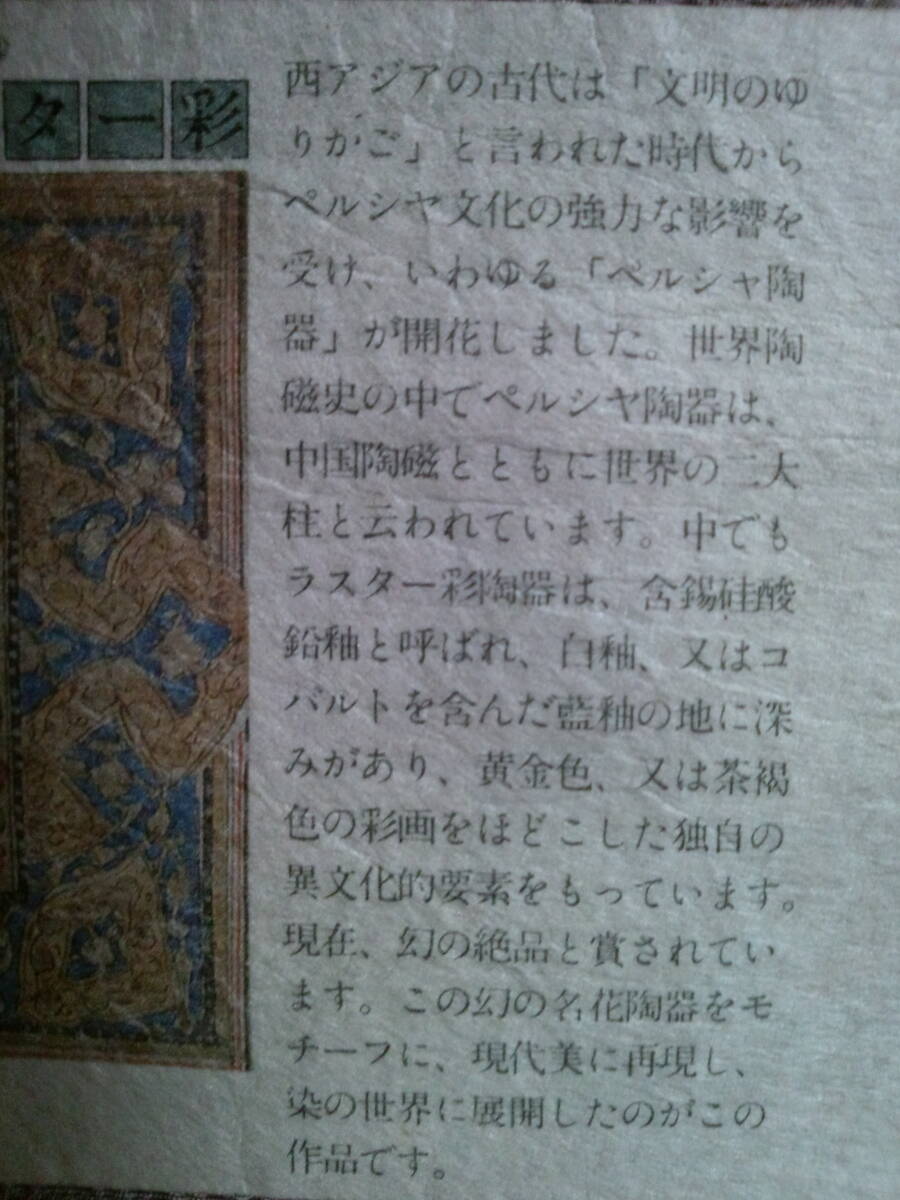 ター彩
西アジアの古代は「文明のゆ
りかご」と言われた時代から
ペルシヤ文化の強力な影響を
受け、いわゆる「ペルシャ陶
器」が開花しました。世界陶
磁史の中でペルシヤ陶器は、
中国陶磁とともに世界の二大
柱と云われています。中でも
ラスター彩陶器は、含錫硅酸
鉛釉と呼ばれ、白釉、又はコ
バルトを含んだ藍釉の地に深
みがあり、黄金色、又は茶褐
色の彩画をほどこした独自の
異文化的要素をもっています。
現在、幻の絶品と賞されてい
ます。この幻の名花陶器をモ
チーフに、現代美に再現し、
染の世界に展開したのがこの
作品です。